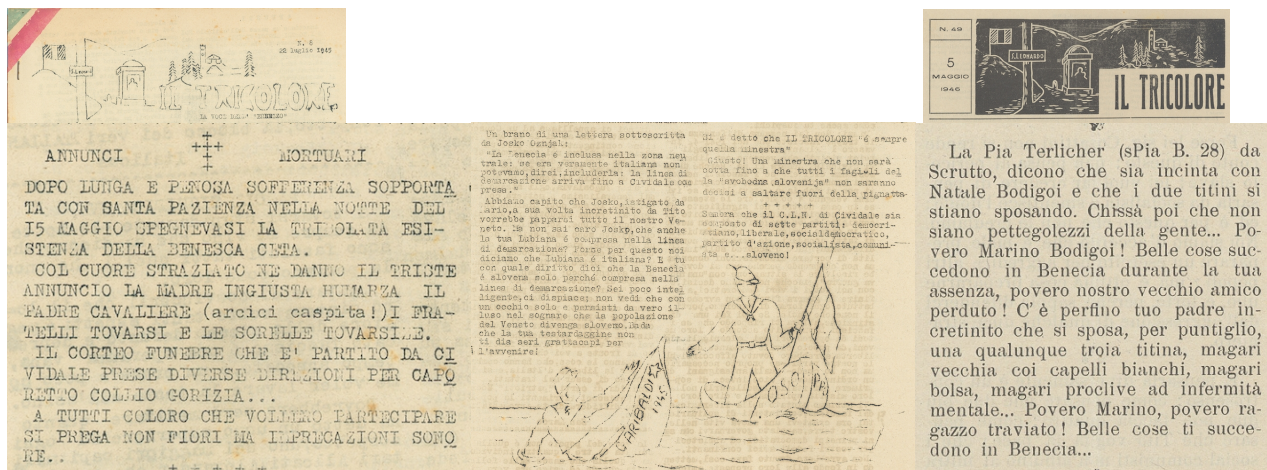 N. 8
22 luglio 1945
S. LEONARDO
IL TRICOLORE
LA VOCE DELL' "BENECIO"
ANNUNCI MORTUARI
DOPO LUNGA E PENOSA SOFFERENZA SOPPORTA
TA CON SANTA PAZIENZA NELLA NOTTE DEL
I5 MAGGIO SPEGNEVASI LA TRIBOLATA ESI-
STENZA DELLA BENESCA CETA.
COL CUORE STRAZIATO NE DANNO IL TRISTE
ANNUNCIO LA MADRE INGIUSTA HUMARZA IL
PADRE CAVALIERE (arcici caspita!)I FRA-
TELLI TOVARSI E LE SORELLE TOVARSILE.
IL CORTEO FUNEBRE CHE E' PARTITO DA CI
VIDALE PRESE DIVERSE DIREZIONI PER CAPO
RETTO COLLIO GORIZIA...
A TUTTI COLORO CHE VOLLERO PARTECIPARE
SI PREGA NON FIORI MA IMPRECAZIONI SONO
RE..
Un brano di una lettera sottoscritta
da Josko Ognjal:
"La Benecia è inclusa nella zona neu
trale: se era veramente italiana non
potevamo, direi, includerla: la linea di
demarcazione arriva fino a Cividale com
presa."
Abbiamo capito che Josko, istigato da
Mario, a sua volta incretinito da Tito
vorrebbe papparsi tutto il nostro Ve-
neto. Ma non sai caro Josko, che anche
la tua Lubiana è compresa nella linea
di demarcazione? Forse per questo noi
diciamo che Lubiana è italiana? E tu
con quale diritto dici che la Benecia
è slovena solo perché compresa nella
linea di demarcazione? Sei poco intel
ligente, ci dispiace: non vedi che con
un occhio solo e permisti da vero il-
luso nel sognare che la popolazione
del Veneto divenga slovena. Bada
che la tua testardaggine non
ti dia seri grattacapi per
l'avvenire!
GARIBALDI
1945
Si è detto che IL TRICOLORE "è sempre
quella minestra"
Giusto: Una minestra che non sarà
cotta fino a che tutti i fagiuoli del
la "svobodna slovenija" non saranno
decisi a saltare fuori della pignatta
+ + + + +
Sembra che il C.L.N. di Cividale sia
composto di sette partiti: democri-
stiano, liberale, socialdemocratico,
partito d'azione, socialista, comuni-
sta e...sloveno!
OSOPPO
N. 49
5
MAGGIO
1946
S. LEONARDO
IL TRICOLORE
La Pia Terlicher (sPia B. 28) da
Scrutto, dicono che sia incinta con
Natale Bodigoi e che i due titini si
stiano sposando. Chissà poi che non
siano pettegolezzi della gente... Po-
vero Marino Bodigoi! Belle cose suc-
cedono in Benecia durante la tua
assenza, povero nostro vecchio amico
perduto! C'è perfino tuo padre in-
cretinito che si sposa, per puntiglio,
una qualunque troia titina, magari
vecchia coi capelli bianchi, magari
bolsa, magari proclive ad infermità
mentale... Povero Marino, povero ra-
gazzo traviato! Belle cose ti succe-
dono in Benecia...